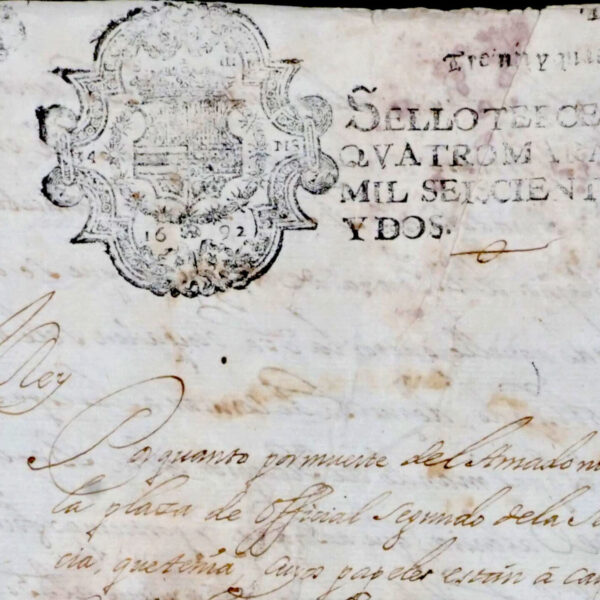 Treinta y
SELLO TERCE
QVATRO MARA
MIL SEISCIENT
Y DOS.
34 MS
16 92
Rey
Por quanto por muerte del Amado
la plaza de Official Segundo de la
cia, que tenia, cuyos papeles están à